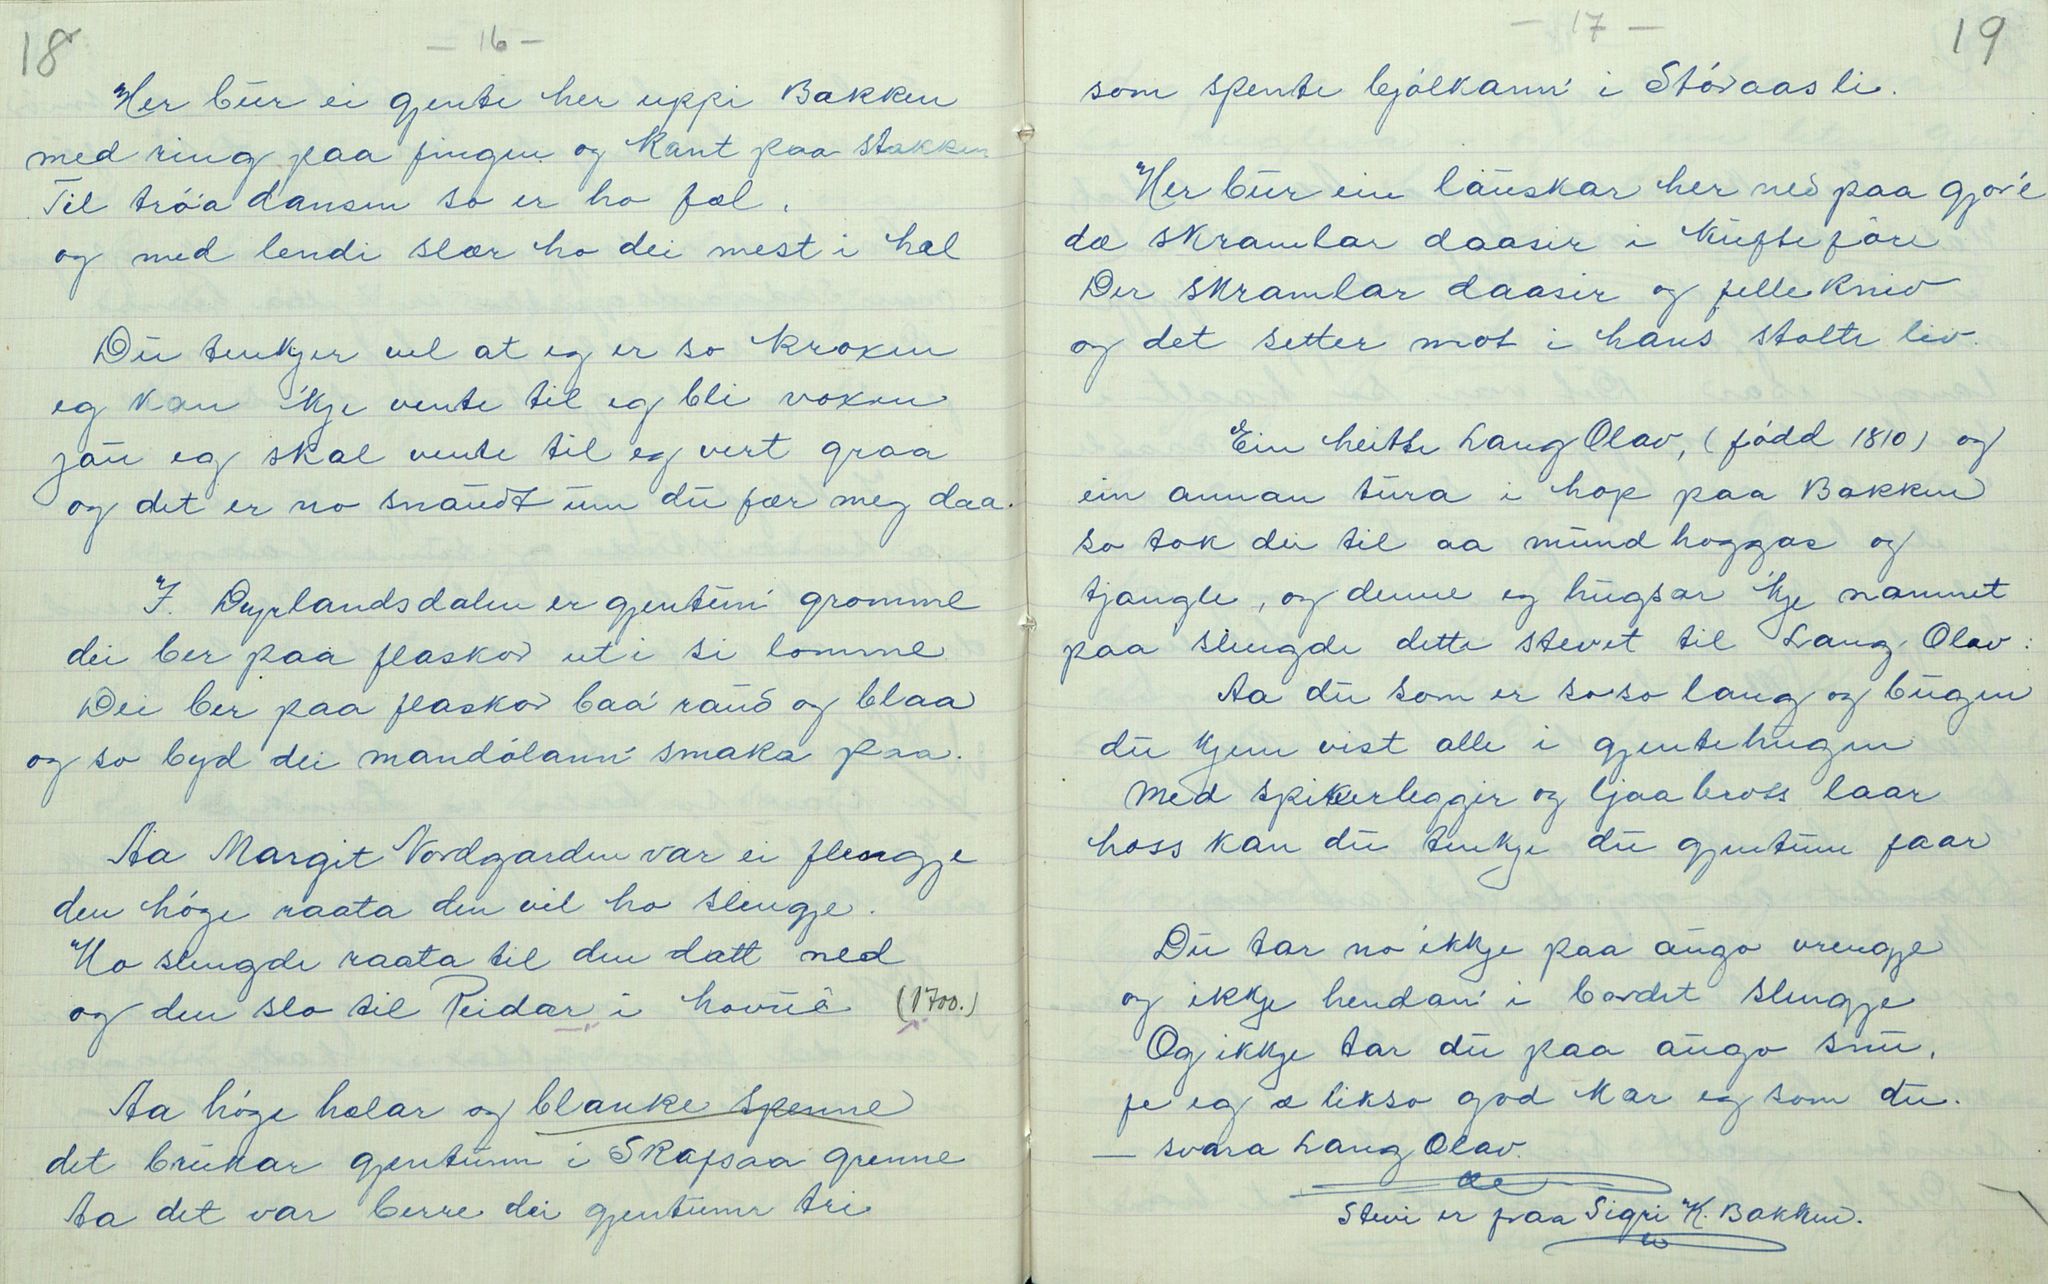 18
— 16 —
Her bur ei gjente her uppi Bakken
med ring paa fingen og kant paa stakken
Til tróa dansen so er ho fæl.
og med lendi slær ho dei mest i hæl
Du tenkjer vel at eg er so kroken
eg kan 'kje vente til eg bli voxen
jau eg skal vente til eg vert graa
og det er no snaudt um du fær meg daa.
I. Dyrlandsdalen er gjentun' gromme
dei ber paa flaskor uti si lomme
Dei ber paa flaskor baa' raud og blaa
og so byd dei mandólann' smaka paa.
Aa Margit Nordgarden var ei flengje
den høge raata den vil ho slengje.
Ho slengde raata til den datt ned
og den slo til Reidar i hovuë (1700.)
Aa høge hælar og blanke spenne
det brukar gjentunn i Skafsaa grenne
Aa det var berre dei gjentunn tri
— 17 —
19
som spente bjólkann' i Stóraasli.
Her bur ein lauskar her ned paa gjór'e
dæ skramlar daasir i kufteföre
Der skramlar daasir og fellekniv
og det setter mot i hans stolte liv.
Ein heitte Lang Olav, (fódd 1810) og
ein annan tura i hop paa Bakken
so tok dei til aa mundhoggas og
tjangle, og denne eg hugsar 'kje namnet
paa slengde dette stevet til Lang Olav:
Aa du som er so so lang og bugen
du kjem vist alle i gjentehugen
Med spikerleggir og ljaabross laar
hoss kan du tenkje du gjentunn faar
Du tar no ikkje paa augo vrengje
og ikkje hendan' i bordet slengje
Og ikkje tar du paa augo snu,
fe eg æ likso god kar eg som du.
— svara Lang Olav.
Stevi er fraa Sigri K. Bakken.